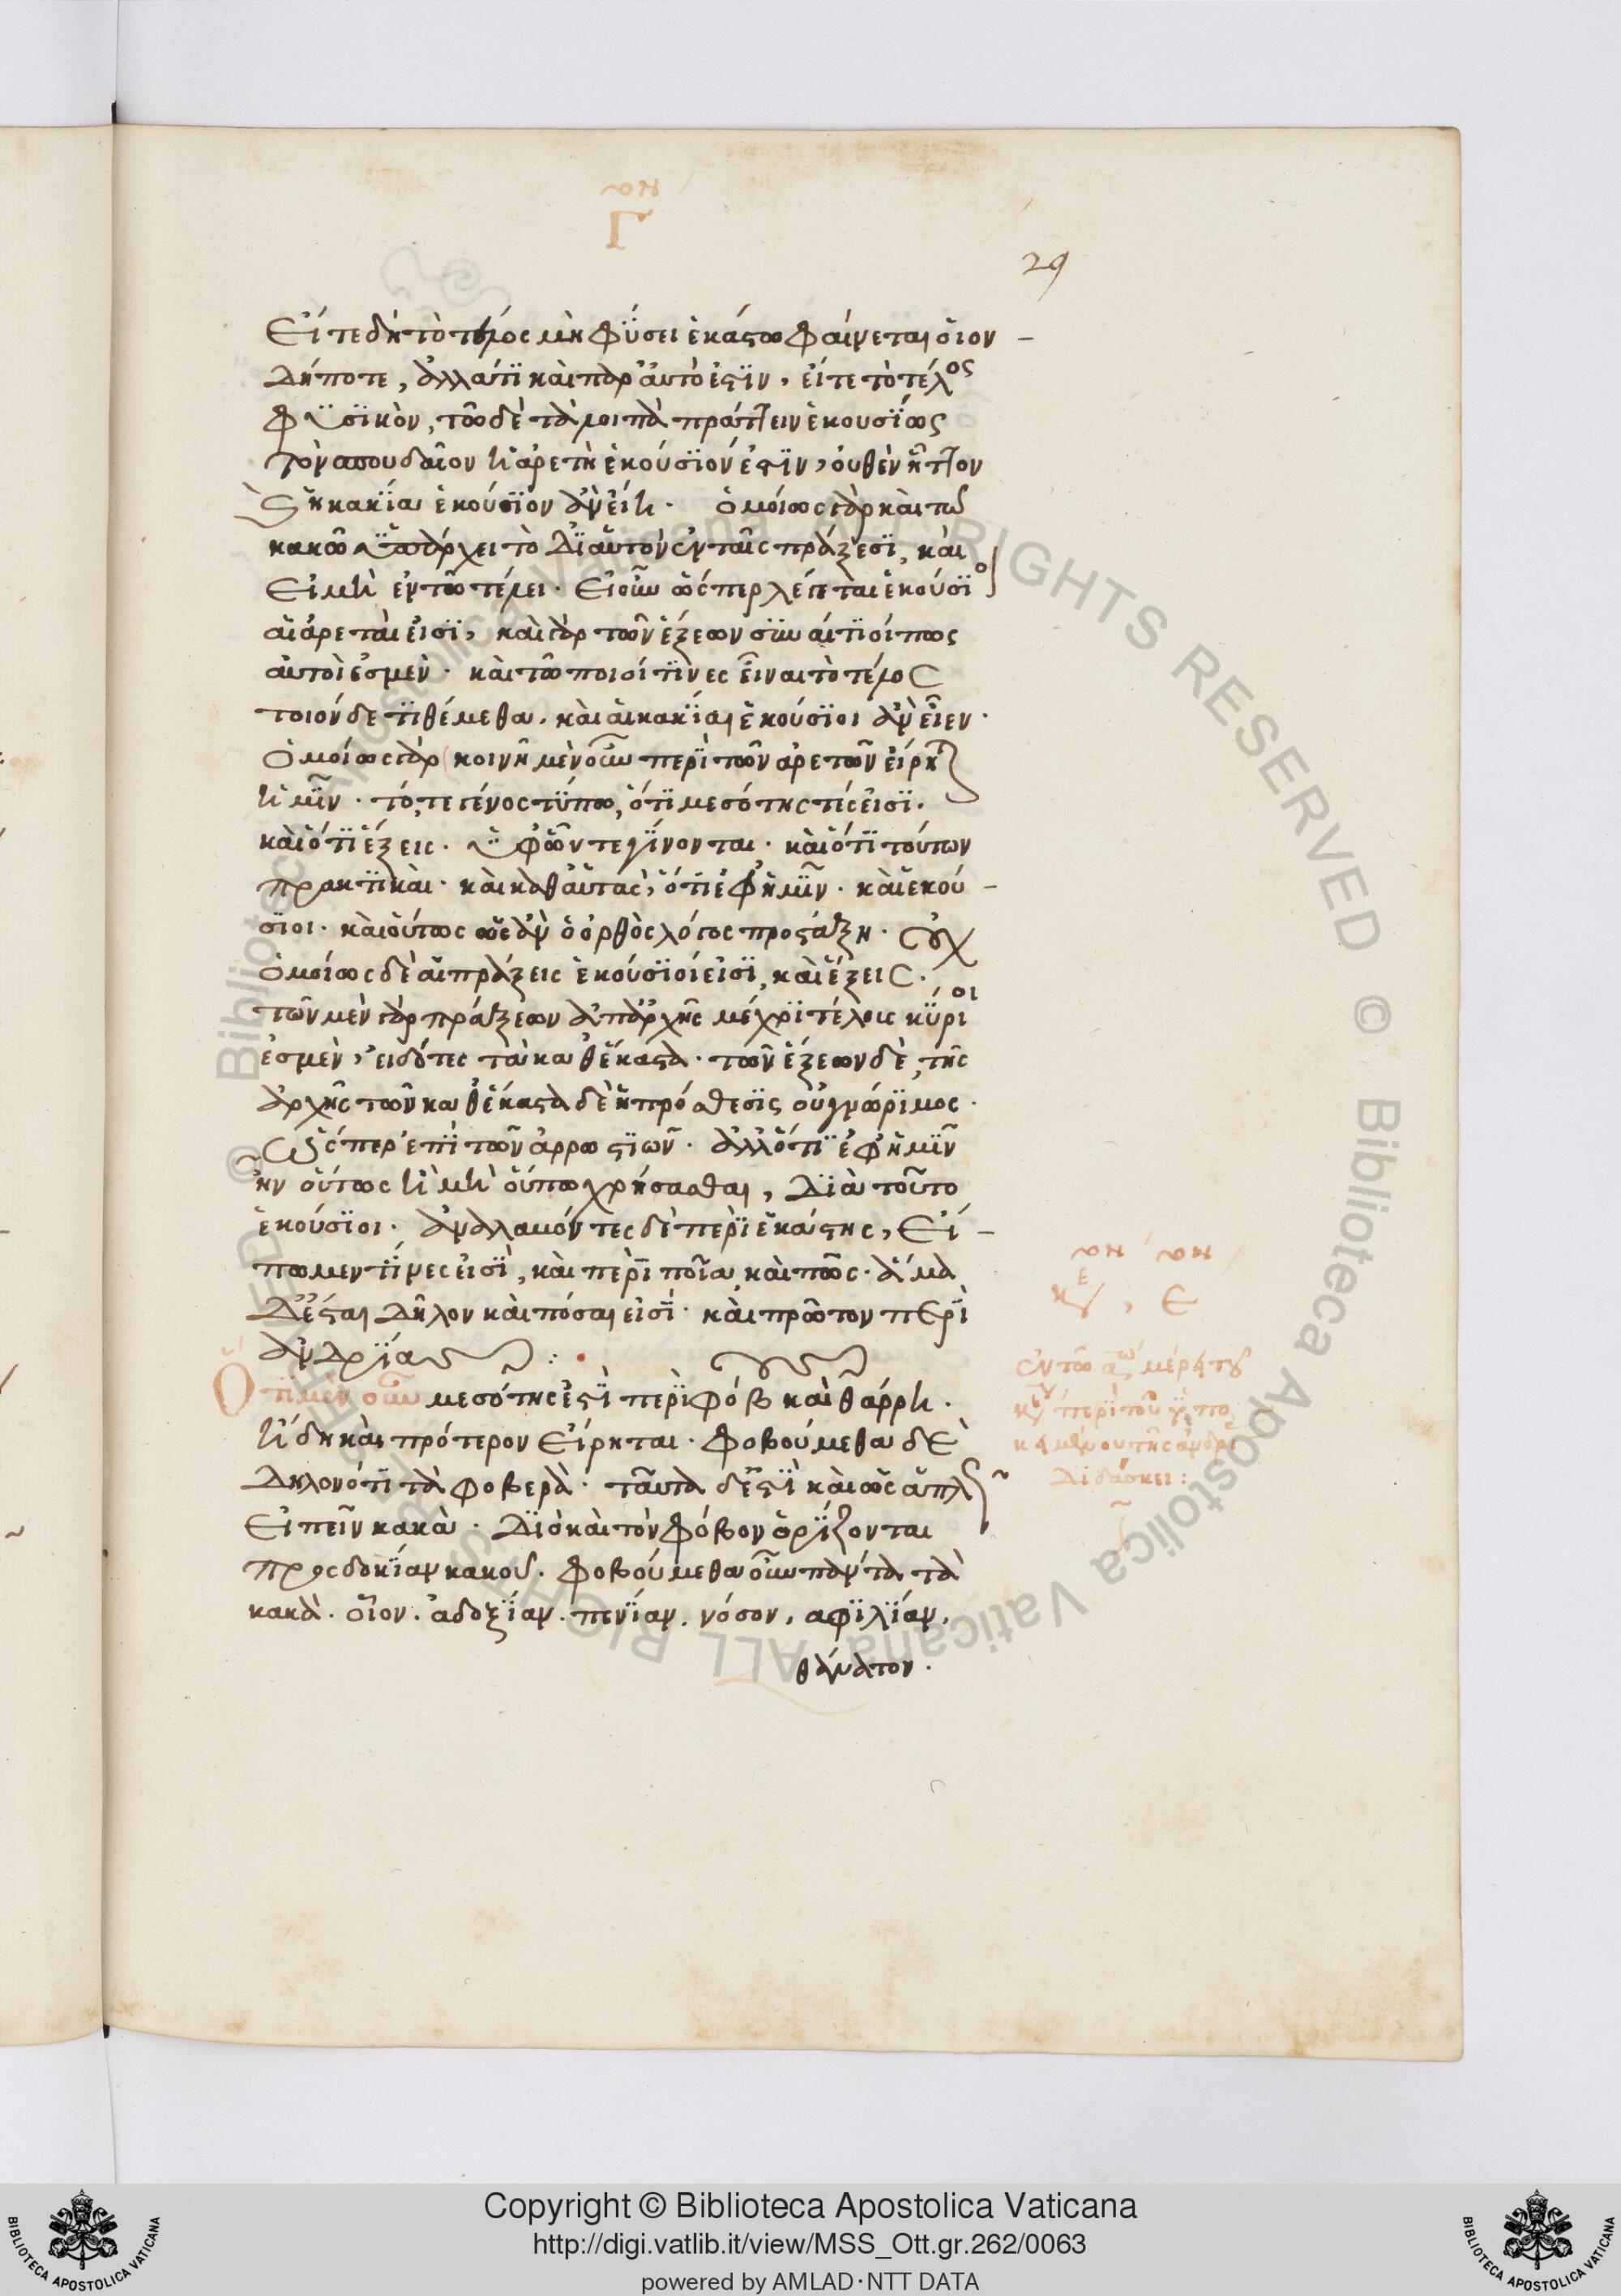 ον
Γ
29
Εἴτε δὴ τὸ τέλος μὴ φύσει ἑκάστω φαίνεται οἷον
δήποτε, ἀλλά τι καὶ παρ' αὐτό ἐστιν, εἴτε τὸ τέλος
φυσικὸν, τῶ δὲ τὰ λοιπὰ πράττειν ἑκουσίως
τὸν σπουδαῖον ἡ ἀρετὴ ἑκούσιόν ἐστιν, οὐθὲν ἧττον
καὶ ἡ κακία ἑκούσιον ἂν εἴη. ὁμοίως γὰρ καὶ τῶ
κακῶ ὑπάρχει τὸ δι' αὑτὸν ἐν ταῖς πράξεσι, καὶ
εἰ μὴ ἐν τῶ τέλει. Εἰ οὖν ὥσπερ λέγεται ἑκούσιοι
αἱ ἀρεταὶ εἰσὶ, καὶ γὰρ τῶν ἕξεων συναίτιοί πως
αὐτοὶ ἐσμὲν. καὶ τῶ ποιοί τινες εἶναι τὸ τέλος
τοιόνδε τιθέμεθα, καὶ αἱ κακίαι ἑκούσιοι ἂν εἶεν.
Ὁμοίως γὰρ κοινῆ μὲν οὖν περὶ τῶν ἀρετῶν εἴρηται
ἡμῖν. τό, τε γένος τύπω, ὅτι μεσότητές εἰσι.
καὶ ὅτι ἕξεις. ὑφ' ὧν τε γίνονται. καὶ ὅτι τούτων
πρακτικαὶ. καὶ καθ' αὑτὰς, ὅτι ἐφ' ἡμῖν. καὶ ἑκού
σιοι. καὶ οὕτως ὡς ἂν ὁ ὀρθὸς λόγος προστάξη. Οὐχ
ὁμοίως δὲ αἱ πράξεις ἑκούσιοί εἰσι, καὶ ἕξεις.
τῶν μὲν γὰρ πράξεων ἀπ' ἀρχῆς μέχρι τέλους κύριοι
ἐσμὲν, εἰδότες τὰ καθ' ἕκαστα. τῶν ἕξεων δὲ, τῆς
ἀρχῆς τῶν καθ' ἕκαστα δὲ ἡ πρόσθεσις οὐ γνώριμος.
Ὥσπερ ἐπὶ τῶν ἀρρωστιῶν. ἀλλ' ὅτι ἐφ' ἡμῖν
ἦν οὕτως ἢ μὴ οὕτω χρήσασθαι, διὰ τοῦτο
ἑκούσιοι. ἀναλαβόντες δὲ περὶ ἑκάστης, Εἴ
πωμεν τίνες εἰσὶ, καὶ περὶ ποῖα καὶ πῶς. ἅμα
δ' ἔσται δῆλον καὶ πόσαι εἰσί. καὶ πρῶτον περὶ
ἀνδρίας :
Ὅτι μὲν οὖν μεσότης ἐστὶ περὶ φόβους καὶ θάρρη.
ἤδη καὶ πρότερον εἴρηται. Φοβούμεθα δὲ
δηλονότι τὰ φοβερὰ. ταῦτα δ' ἐστὶ καὶ ὡς ἁπλῶς
Εἰπεῖν κακὰ. Διὸ καὶ τὸν φόβον ὁρίζονται
προσδοκίαν κακοῦ. Φοβούμεθα οὖν πάντα τὰ
κακὰ. οἷον. ἀδοξίαν. πενίαν. νόσον, ἀφιλίαν,
θάνατον.